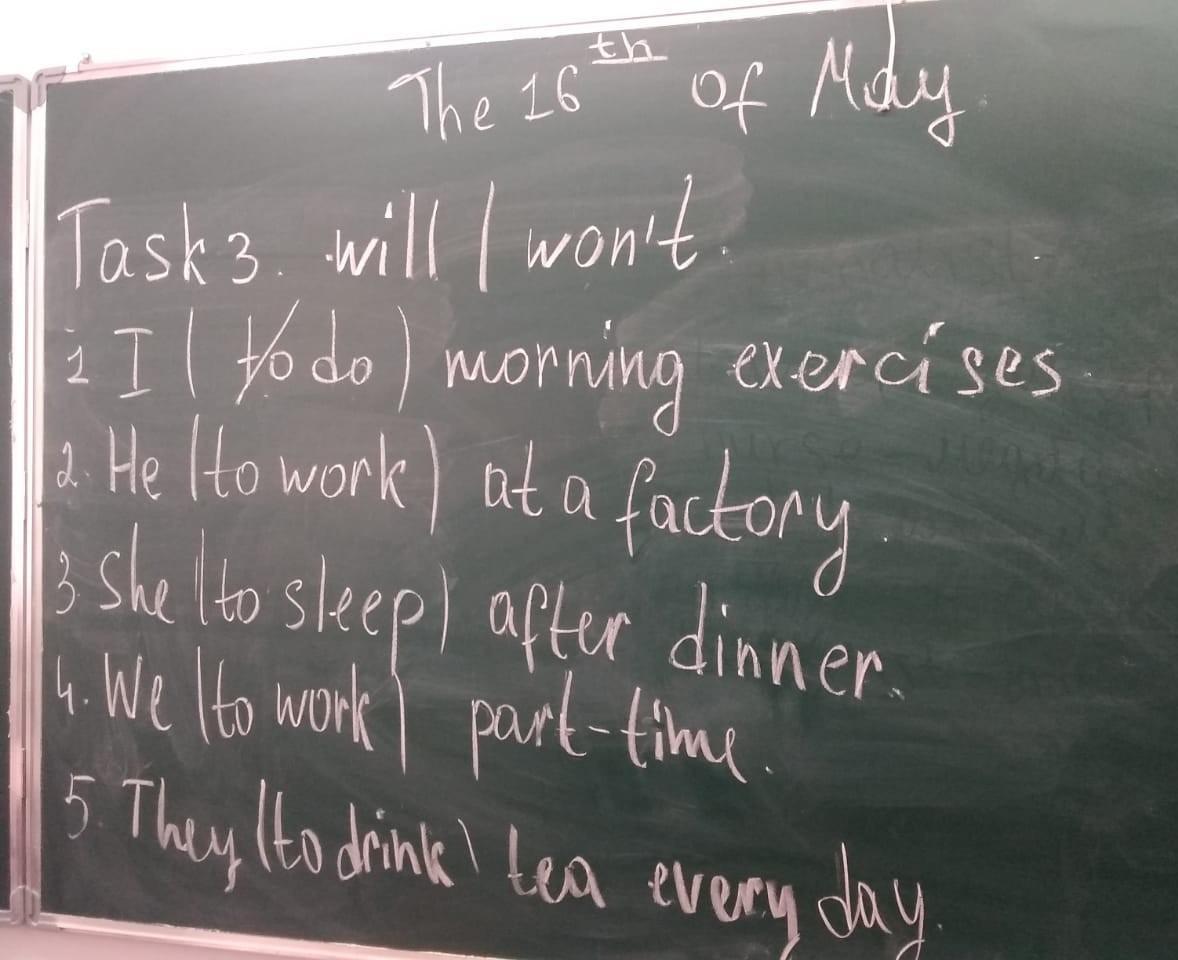 The 16th of May
Task 3. will / won't.
1 I (to do) morning exercises.
2. He (to work) at a factory.
3 She (to sleep) after dinner.
4. We (to work) part-time.
5. They (to drink) tea every day.